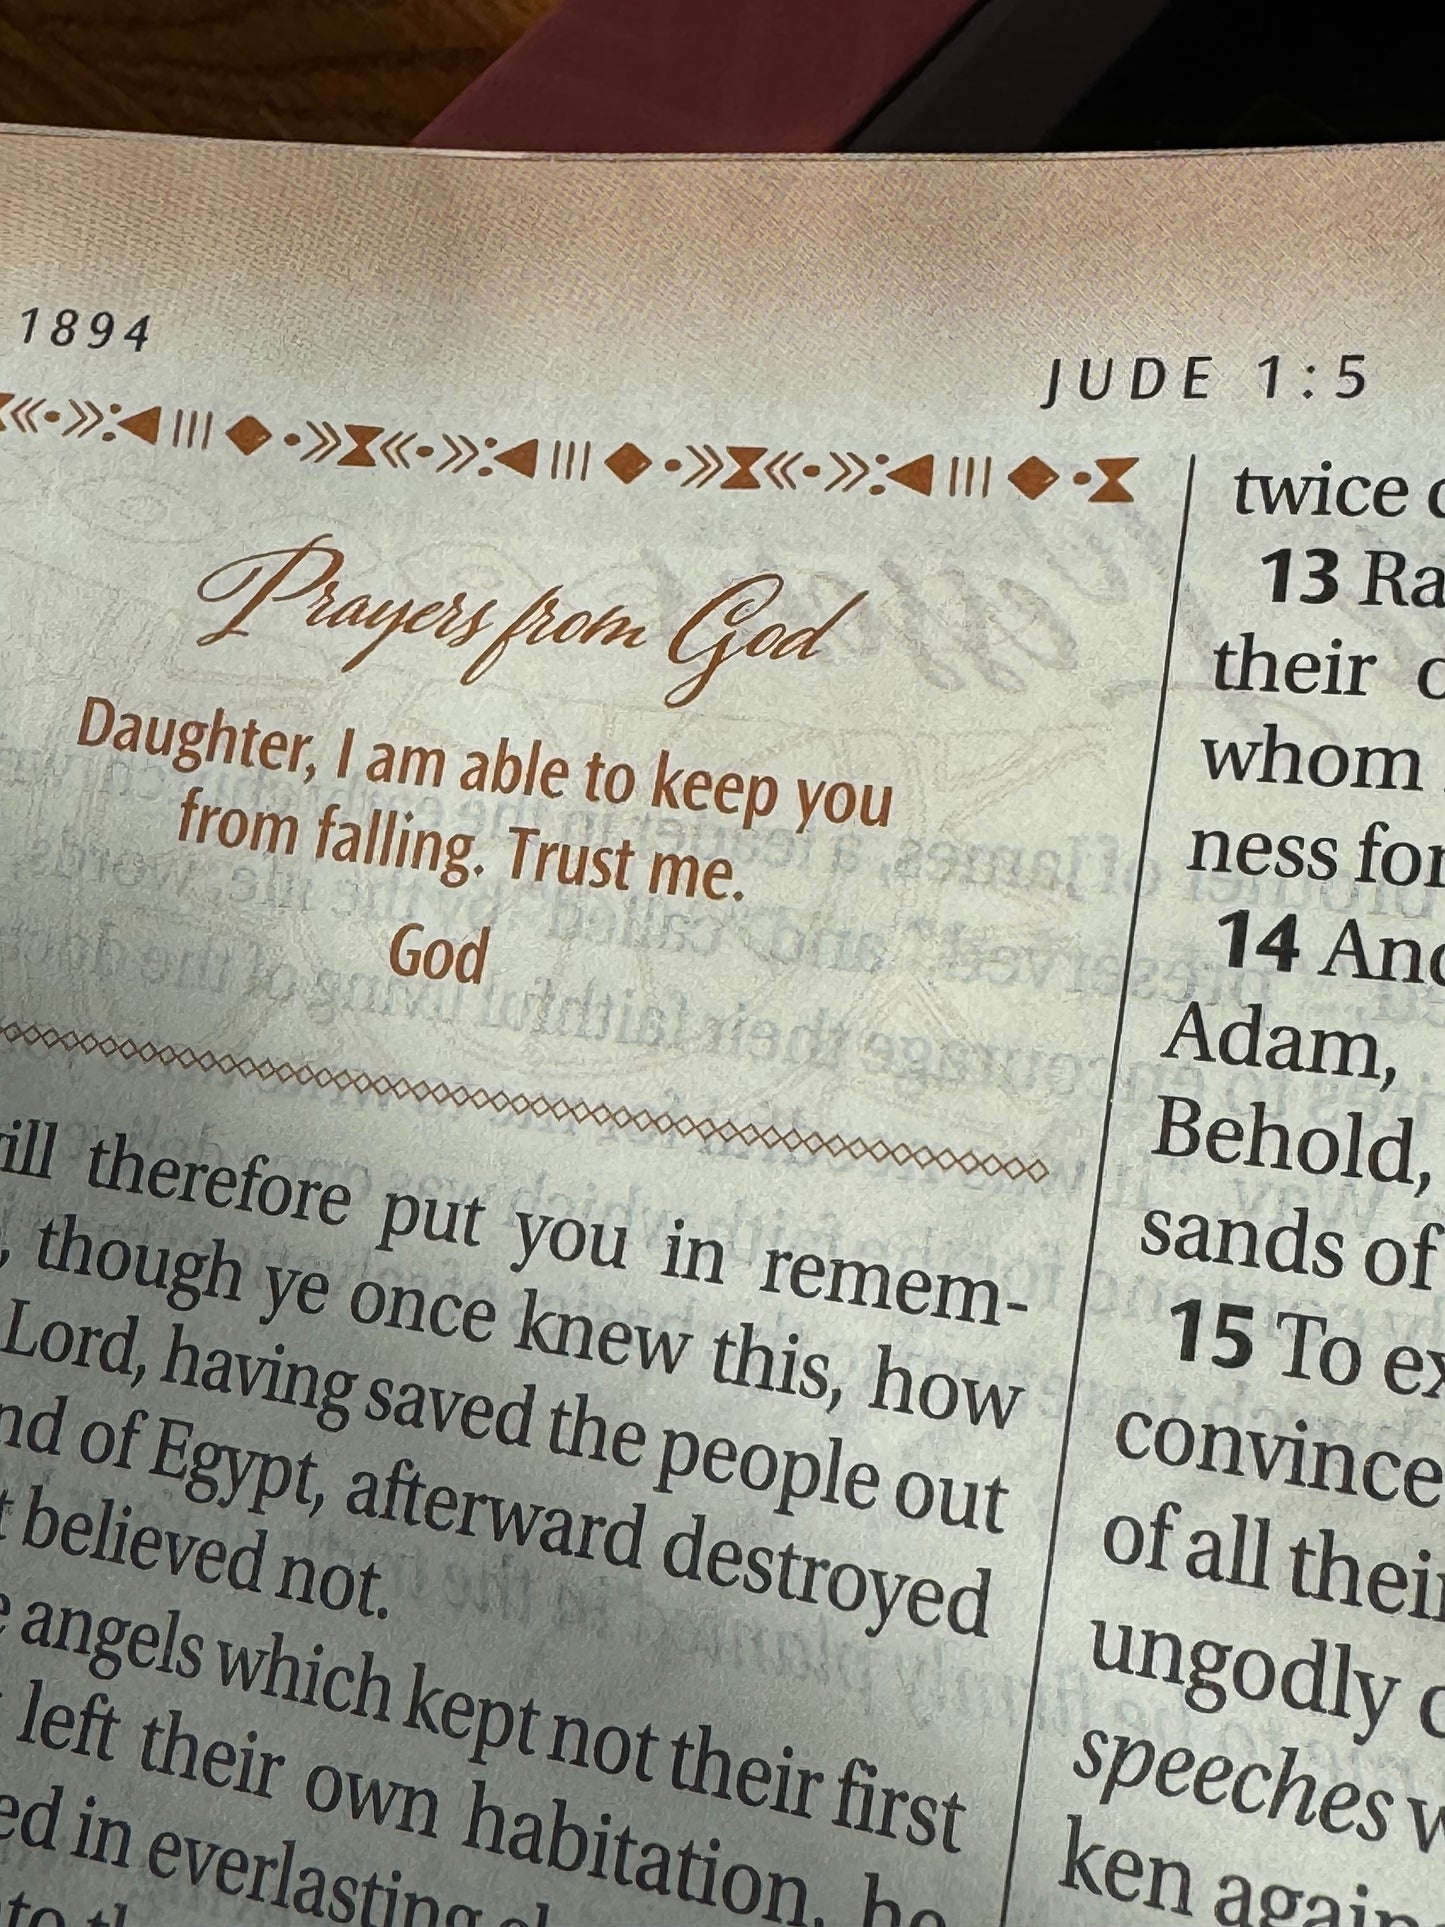 1894
JUDE 1:5
Prayers from God
Daughter, I am able to keep you
from falling. Trust me.
God
therefore put you in remem-
, though ye once knew this, how
Lord, having saved the people out
of Egypt, afterward destroyed
believed not.
angels which kept not their first
left their own habitation, he
in everlasting
twice
13
their
whom
ness for
14 And
Adam,
Behold,
sands of
15 To
convince
of all their
ungodly
speeches
ken again